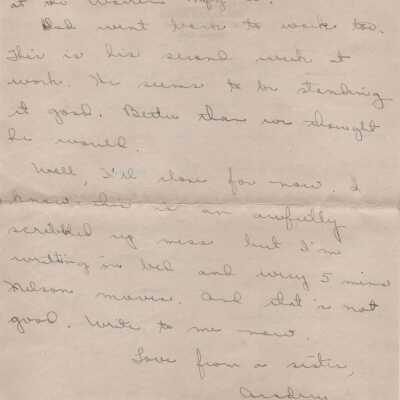 at the Warren
Dad went back to work too.
This is his second week at
work. He seems to be standing
it good. Better than we thought
he would.
Well, I'll close for now. I
know this is an awfully
scribbled up mess but I'm
writting in bed and every 5 mins
Nelson moves. And that's not
good. Write to me now.
Love from a sister,